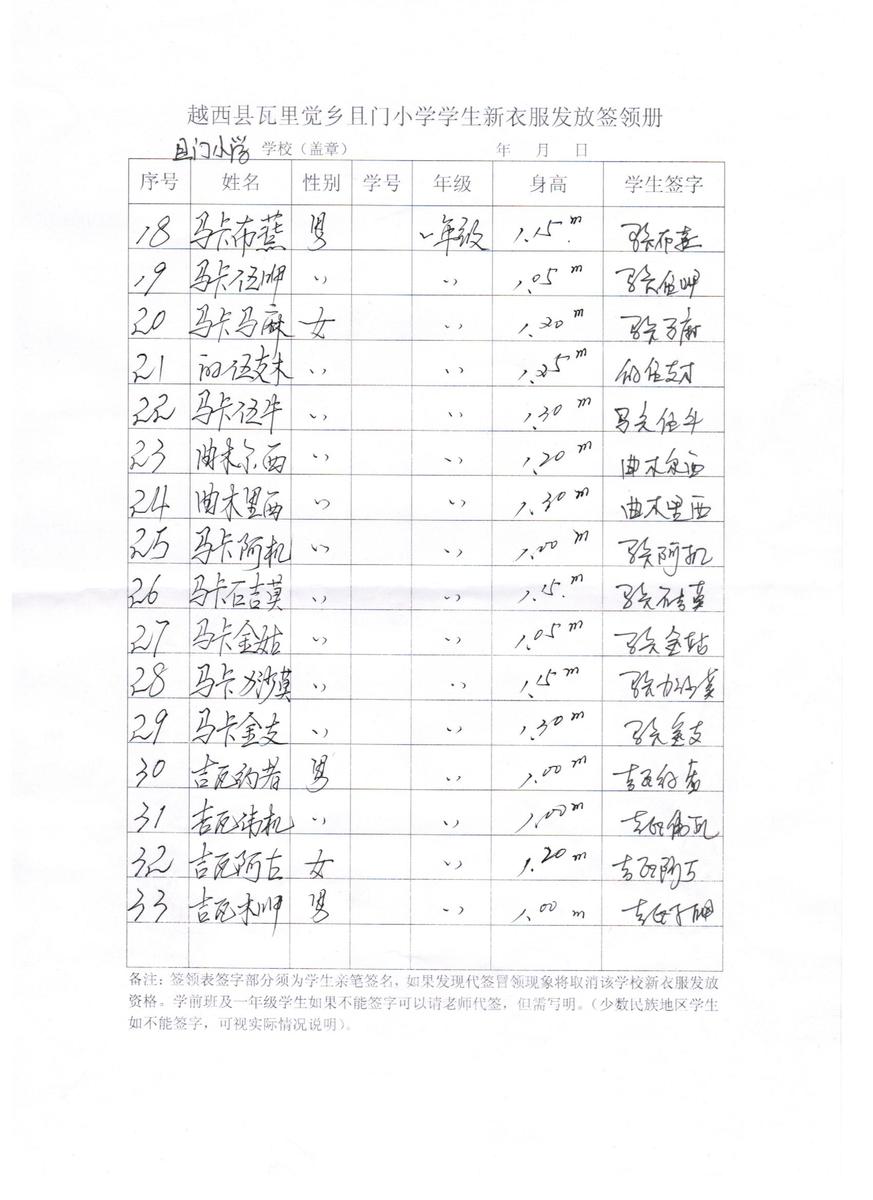 越西县瓦里觉乡且门小学学生新衣服发放签领册
且门小学 学校（盖章） 年 月 日
序号 姓名 性别 学号 年级 身高 学生签字
18 马卡布蕉 男 一年级 1.15m
19 马卡伍呷 〃 〃 1.05m 马卡伍呷
20 马卡马麻 女 〃 1.20m 马卡马麻
21 的伍支木 〃 〃 1.25m 的伍支木
22 马卡伍牛 〃 〃 1.30m 马卡伍牛
23 曲木尔西 〃 〃 1.20m 曲木尔西
24 曲木里西 〃 〃 1.30m 曲木里西
25 马卡阿机 〃 〃 1.00m 马卡阿机
26 马卡石吉莫 〃 〃 1.15m 马卡石吉莫
27 马卡金姑 〃 〃 1.05m 马卡金姑
28 马卡力沙莫 〃 〃 1.15m 马卡力沙莫
29 马卡金支 〃 〃 1.30m 马卡金支
30 吉瓦约者 男 〃 1.00m
31 吉瓦伟机 〃 〃 1.00m
32 吉瓦阿古 女 〃 1.20m
33 吉瓦木呷 男 〃 1.00m
备注：签领表签字部分须为学生亲笔签名，如果发现代签冒领现象将取消该学校新衣服发放
资格。学前班及一年级学生如果不能签字可以请老师代签，但需写明。（少数民族地区学生
如不能签字，可视实际情况说明）。